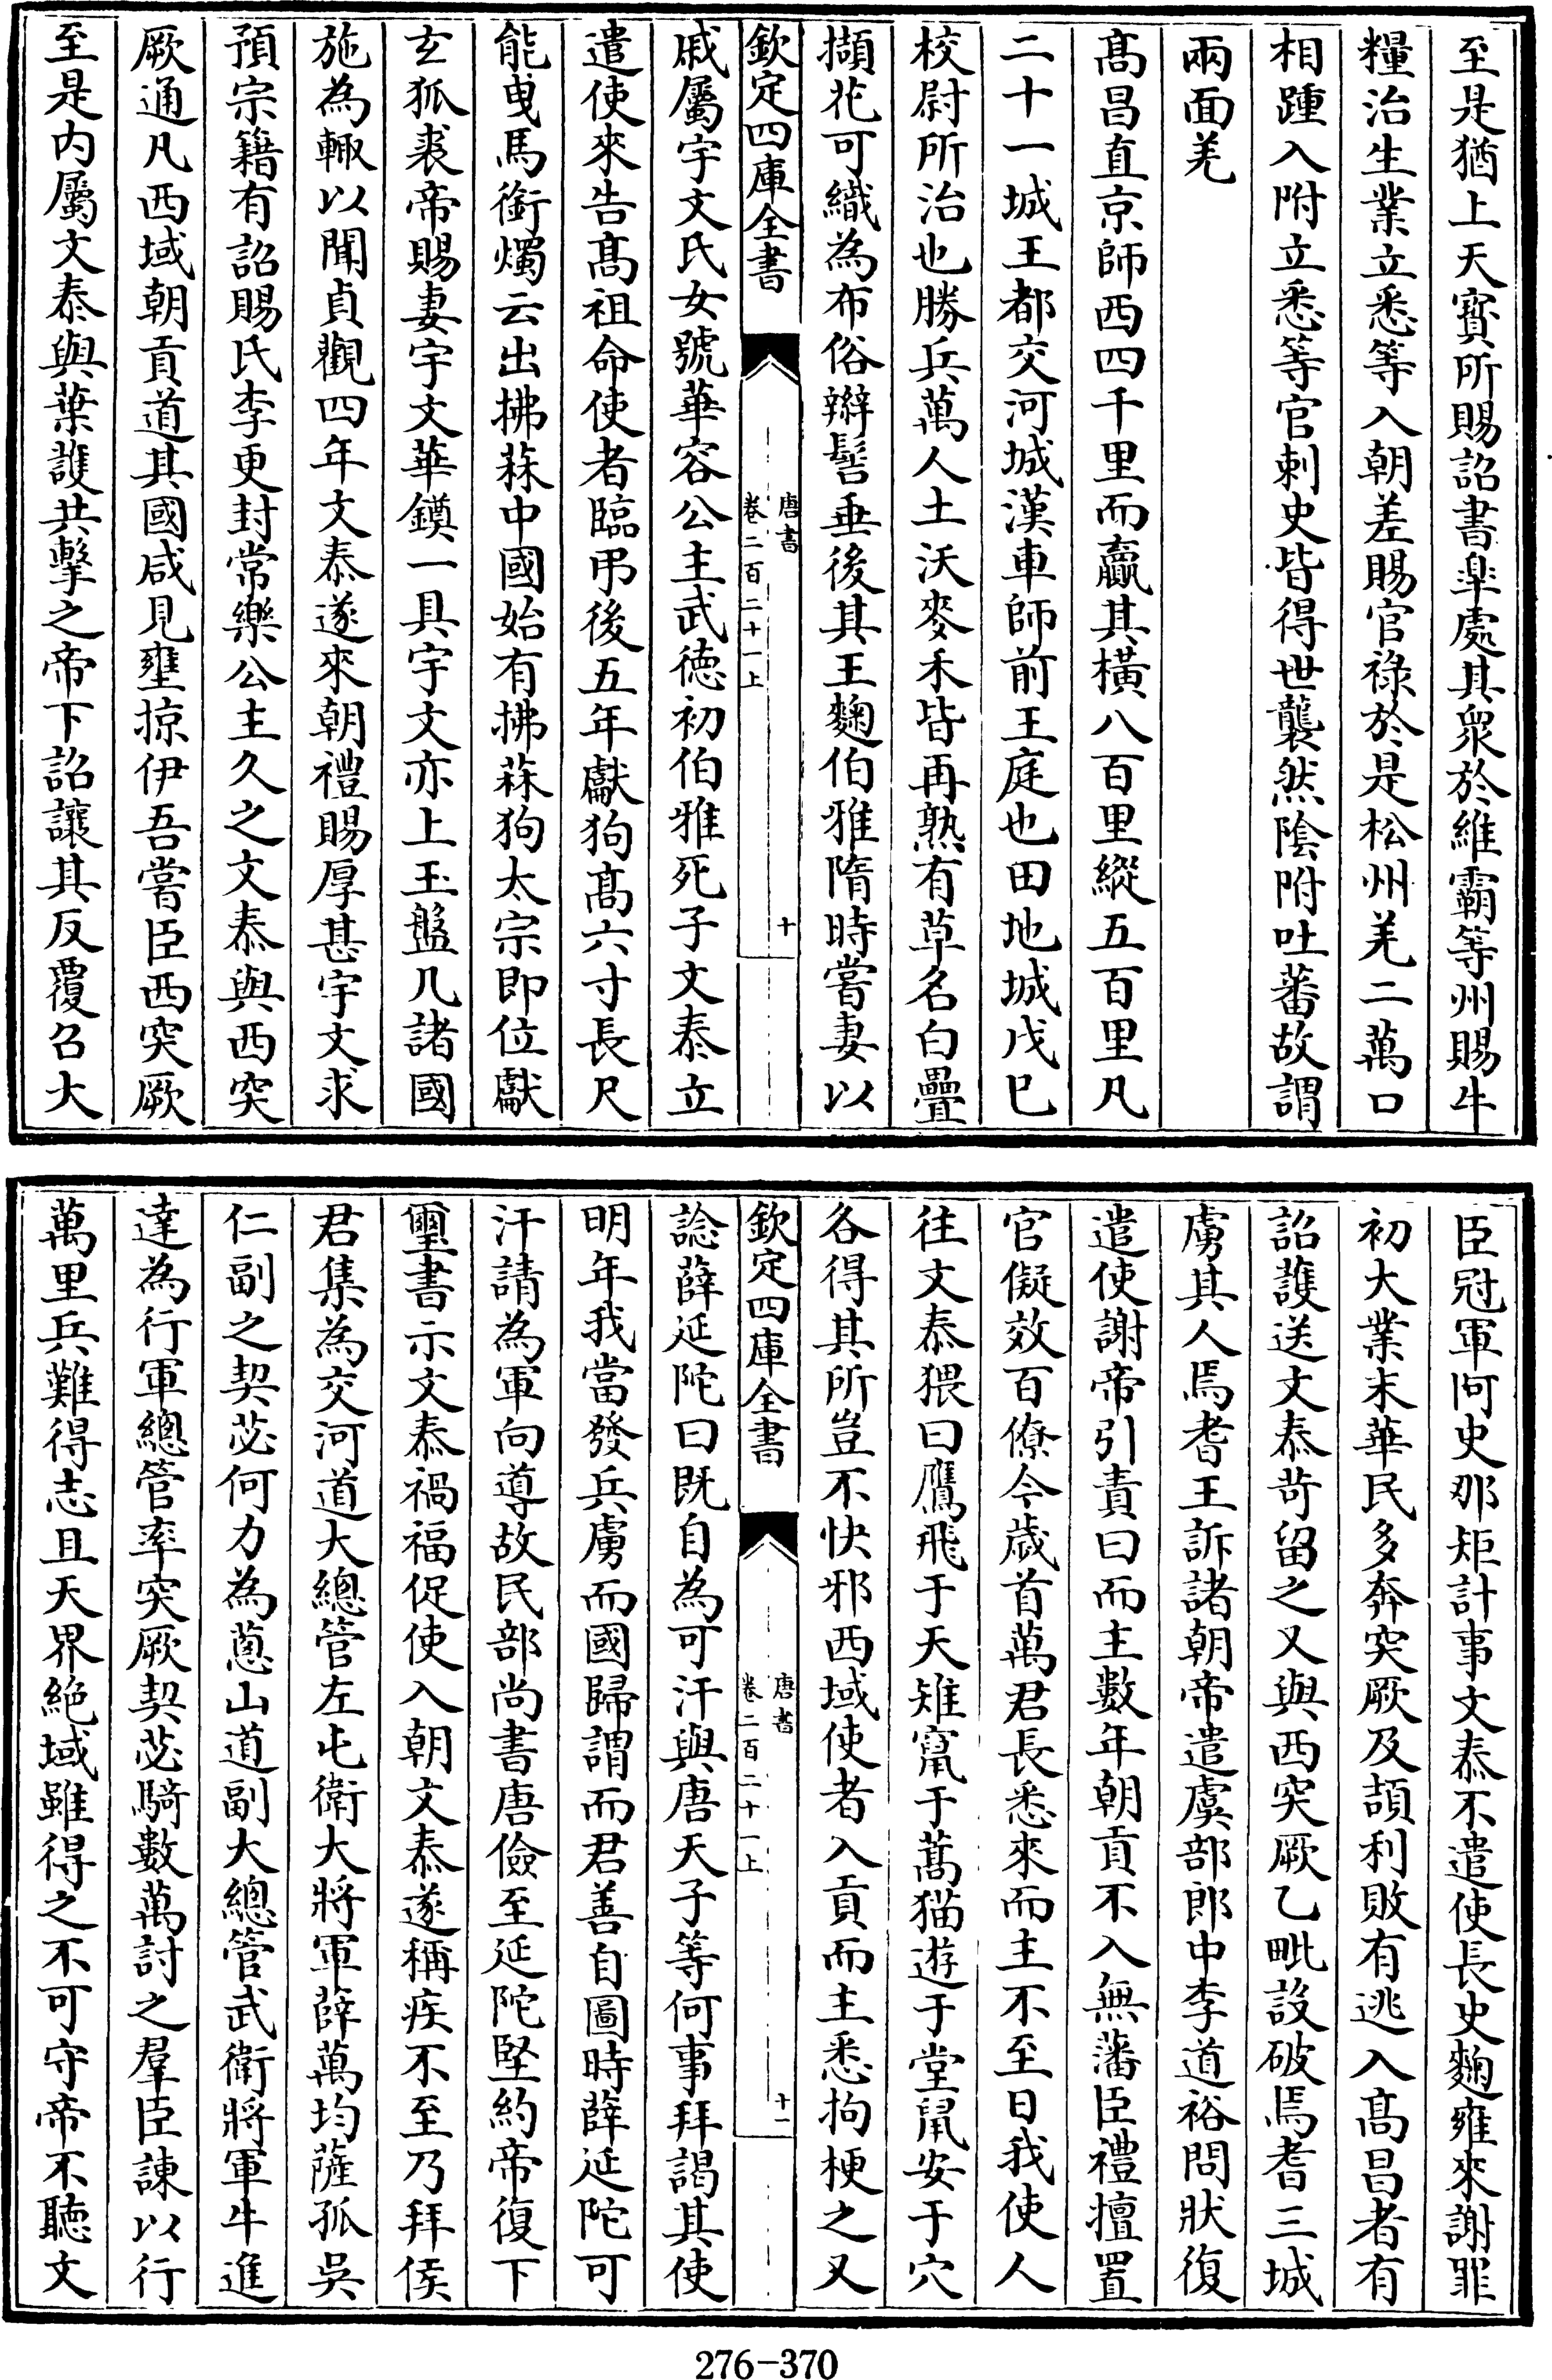 至是猶上天寶所賜詔書丵處其衆於維霸等州賜牛
糧治生業立悉等入朝差賜官祿於是松州羌二萬口
相踵入附立悉等官刺史皆得世襲然陰附吐蕃故謂
兩面羌
髙昌直京師西四千里而贏其橫八百里縱五百里凡
二十一城王都交河城漢車師前王庭也田地城戊巳
校尉所治也勝兵萬人土沃麥禾皆再熟有草名白疊
擷花可織為布俗辮髻垂後其王麴伯雅隋時嘗妻以
欽定四庫全書
唐書
卷二百二十一上
十
戚屬宇文氏女號華容公主武徳初伯雅死子文泰立
遣使來告髙祖命使者臨弔後五年獻狗髙六寸長尺
能曵馬銜燭云出拂菻中國始有拂菻狗太宗即位獻
玄狐裘帝賜妻宇文華鏌一具宇文亦上玉盤凡諸國
施為輙以聞貞觀四年文泰遂來朝禮賜厚甚宇文求
預宗籍有詔賜氏李更封常樂公主久之文泰與西突
厥通凡西域朝貢道其國咸見壅掠伊吾嘗臣西突厥
至是内屬文泰與葉䕶共擊之帝下詔讓其反覆召大
臣冠軍阿史那矩計事文泰不遣使長史麴雍來謝罪
初大業末華民多奔突厥及頡利敗有逃入髙昌者有
詔䕶送文泰苛留之又與西突厥乙毗設破焉耆三城
虜其人焉耆王訴諸朝帝遣虞部郎中李道裕問狀復
遣使謝帝引責曰而主數年朝貢不入無藩臣禮擅置
官儗效百僚今歳首萬君長悉來而主不至日我使人
往文泰猥曰鷹飛于天雉竄于蒿猫遊于堂鼠安于穴
各得其所豈不快邪西域使者入貢而主悉拘梗之又
欽定四庫全書
唐書
卷二百二十一上
十一
諗薛延陀曰既自為可汗與唐天子等何事拜謁其使
明年我當發兵虜而國歸謂而君善自圖時薛延陀可
汗請為軍向導故民部尚書唐儉至延陀堅約帝復下
璽書示文泰禍福促使入朝文泰遂稱疾不至乃拜侯
君集為交河道大總管左屯衛大將軍薛萬均薩孤吳
仁副之契苾何力為蔥山道副大總管武衛將軍牛進
達為行軍總管率突厥契苾騎數萬討之羣臣諫以行
萬里兵難得志且天界絶域雖得之不可守帝不聽文
276-370